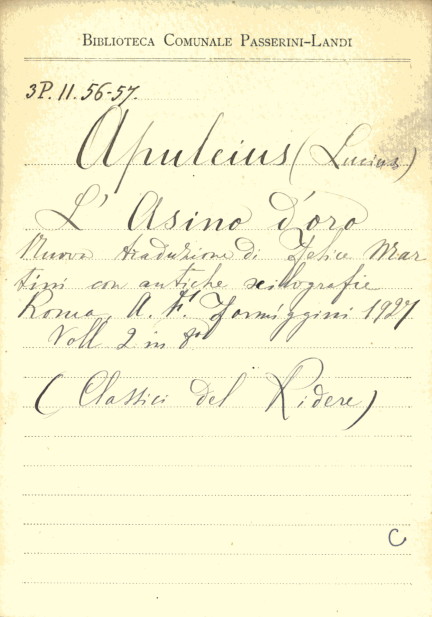 BIBLIOTECA COMUNALE PASSERINI-LANDI
3P. 11. 56-57.
Apuleius (Lucius)
L' Asino d'oro
Nuova traduzione di Felice Mar
tini con antiche silografie
Roma, A. F. Formiggini 1927
Voll. 2 in 8°
(Classici del Ridere)
C